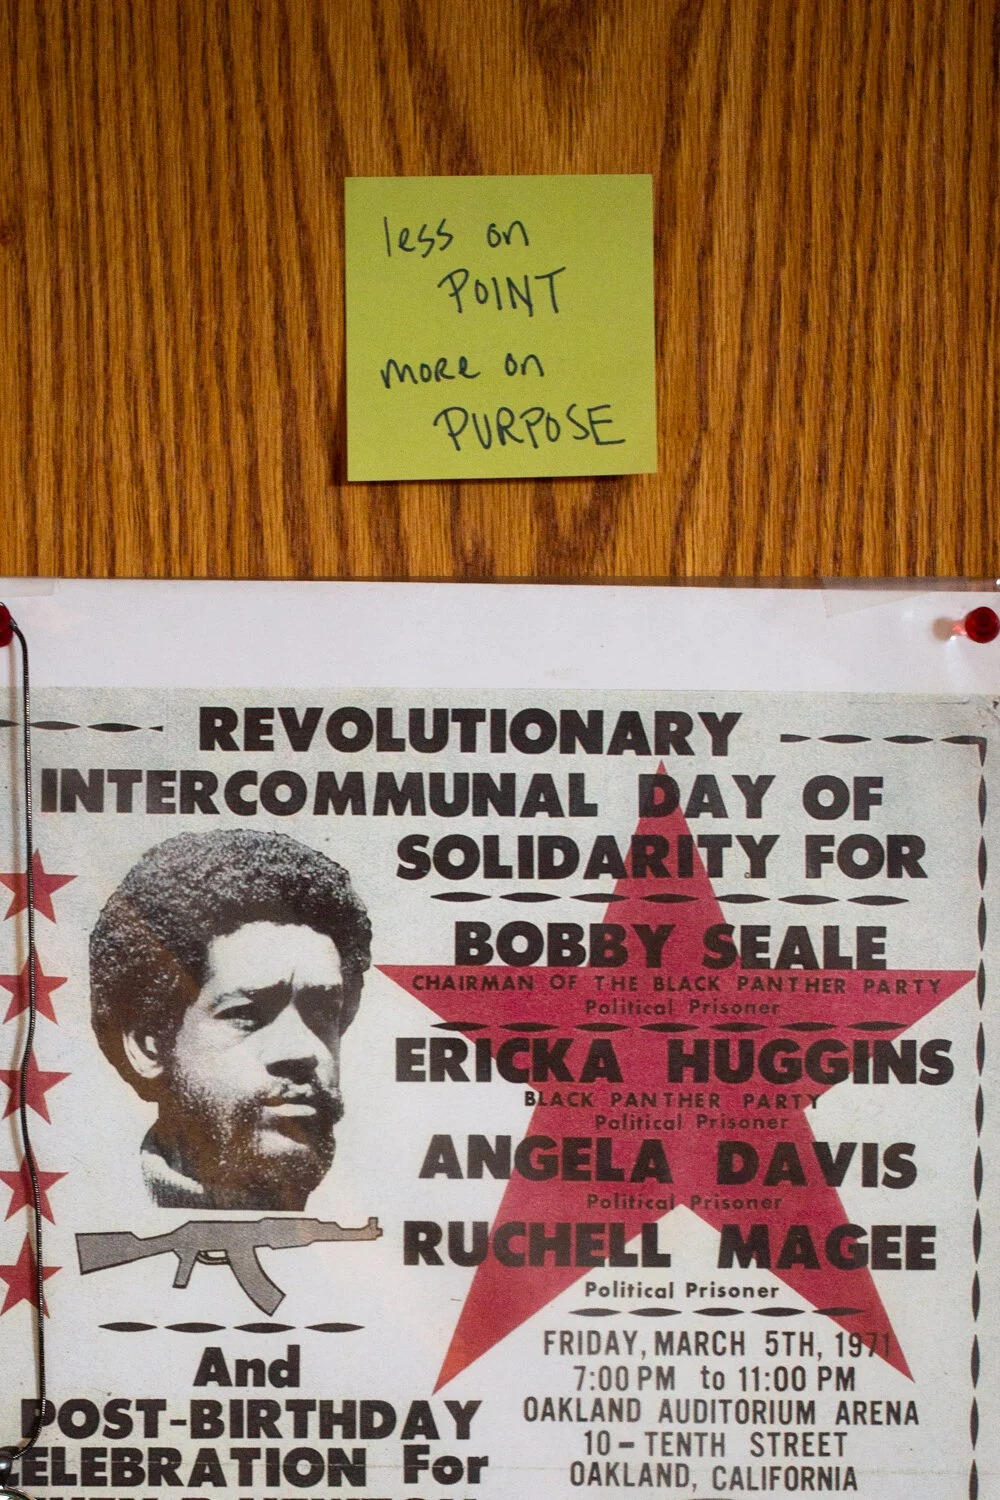 less on
POINT
more on
PURPOSE
REVOLUTIONARY
INTERCOMMUNAL DAY OF
SOLIDARITY FOR
BOBBY SEALE
CHAIRMAN OF THE BLACK PANTHER PARTY
Political Prisoner
ERICKA HUGGINS
BLACK PANTHER PARTY
Political Prisoner
ANGELA DAVIS
Political Prisoner
RUCHELL MAGEE
Political Prisoner
And
POST-BIRTHDAY
CELEBRATION For
FRIDAY, MARCH 5TH, 1971
7:00 PM to 11:00 PM
OAKLAND AUDITORIUM ARENA
10-TENTH STREET
OAKLAND, CALIFORNIA